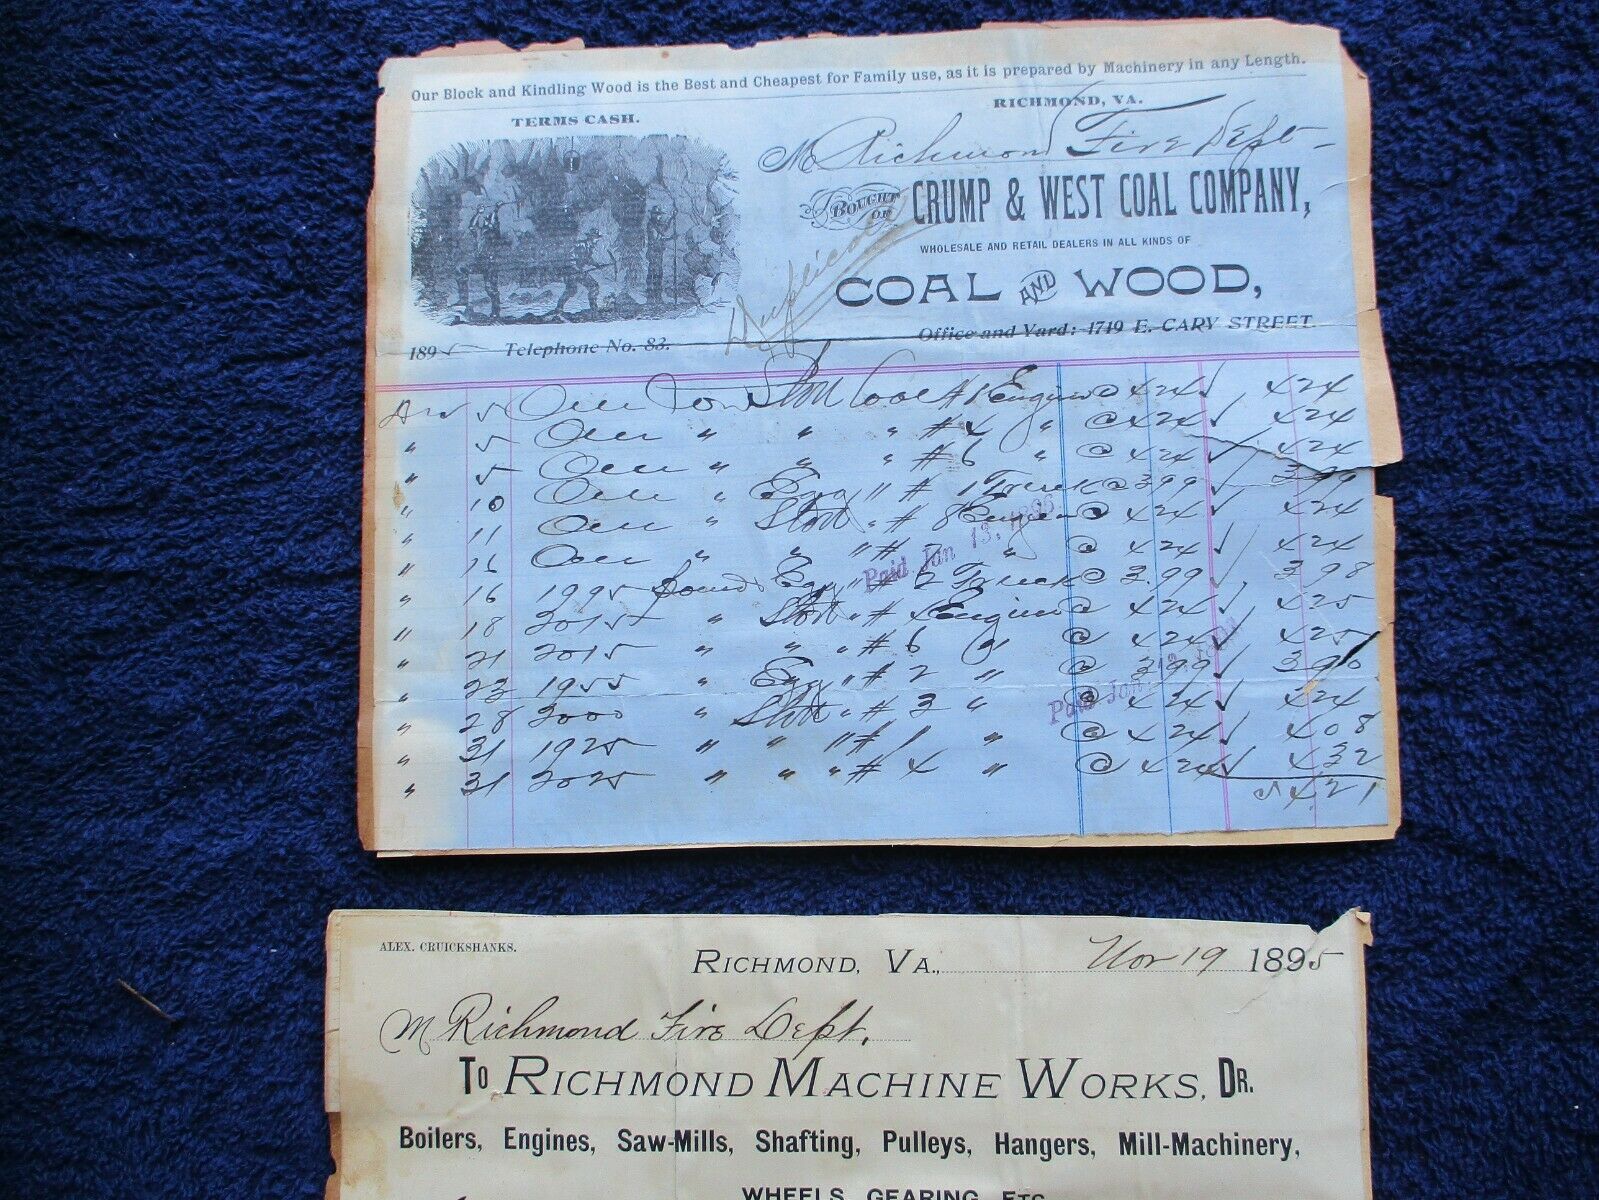 Our Block and Kindling Wood is the Best and Cheapest for Family use, as it is prepared by Machinery in any Length.
TERMS CASH.
RICHMOND, VA.
M Richmond Fire Dept
BOUGHT OF CRUMP & WEST COAL COMPANY,
WHOLESALE AND RETAIL DEALERS IN ALL KINDS OF
COAL AND WOOD,
Duplicate
1895 Telephone No. 83. Office and Yard: 1719 E. CARY STREET.
5 One Ton Stove Coal #1 Engine @ 424 ✓ 424
" 5 One " " " #4 " @ 424 ✓ 424
" 5 One " " " #6 " @ 424 ✓ 424
" 10 One " Egg " #1 Truck @ 399 ✓ 399
" 11 One " Stove " #8 Engine @ 424 ✓ 424
" 16 One " " " # " @ 424 ✓ 424
" 16 1995 Pounds Egg " #2 Truck @ 3.99 ✓ 398
" 18 2015 " Stove " #4 Engine @ 424 ✓ 425
" 21 2015 " " " #6 " @ 424 ✓ 425
" 23 1955 " Egg " #2 " @ 399 ✓ 390
" 28 2000 " Stove " #3 " @ 424 ✓ 424
" 31 1925 " " " #1 " @ 424 ✓ 408
" 31 2025 " " " #4 " @ 424 ✓ 432
5421
Paid Jan 13, 1896
Paid Jan 13, 1896
ALEX. CRUICKSHANKS.
RICHMOND, VA., Nov 19 1895
M Richmond Fire Dept,
To RICHMOND MACHINE WORKS, DR.
Boilers, Engines, Saw-Mills, Shafting, Pulleys, Hangers, Mill-Machinery,
WHEELS, GEARING, ETC.